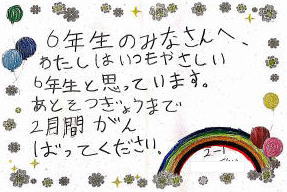 6年生のみなさんへ、
わたしはいつもやさしい
6年生と思っています。
あとそつぎょうまで
2月間がん
ばってください。
2-1